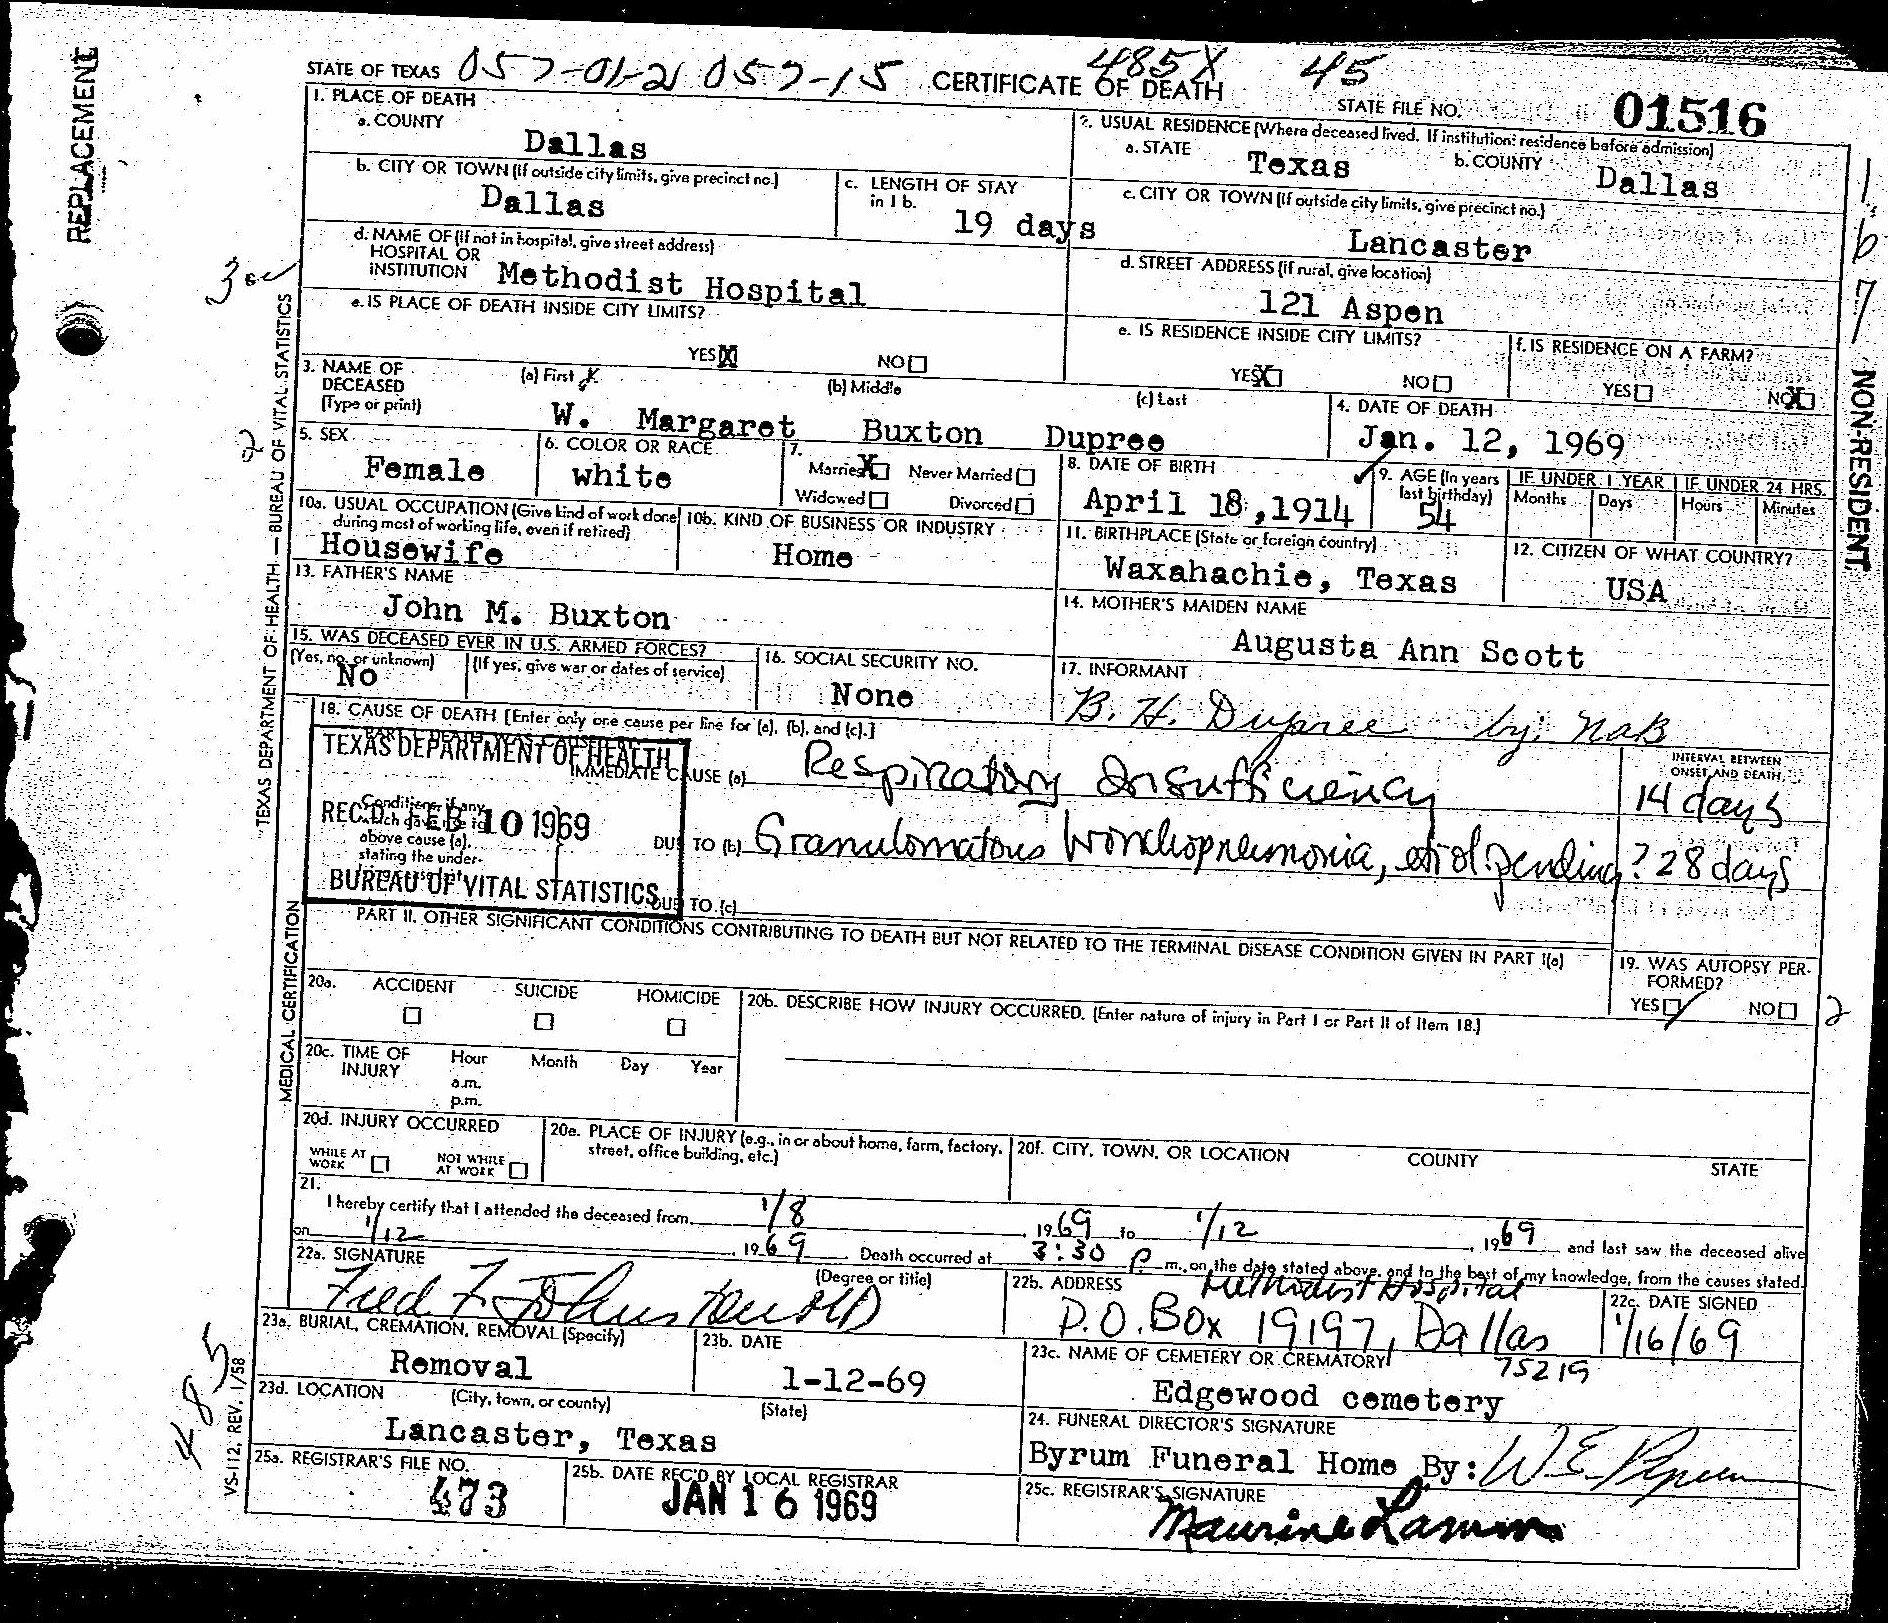 REPLACEMENT
STATE OF TEXAS 057-01-21 057-15 CERTIFICATE OF DEATH 485X 45
STATE FILE NO. 01516
1. PLACE OF DEATH
a. COUNTY
Dallas
2. USUAL RESIDENCE (Where deceased lived. If institution: residence before admission)
a. STATE Texas b. COUNTY Dallas
b. CITY OR TOWN (If outside city limits, give precinct no.)
Dallas
c. LENGTH OF STAY in 1 b.
19 days
c. CITY OR TOWN (If outside city limits, give precinct no.)
Lancaster
d. NAME OF (If not in hospital, give street address)
HOSPITAL OR
INSTITUTION Methodist Hospital
d. STREET ADDRESS (if rural, give location)
121 Aspen
e. IS PLACE OF DEATH INSIDE CITY LIMITS?
YES X NO
e. IS RESIDENCE INSIDE CITY LIMITS?
YES X NO
f. IS RESIDENCE ON A FARM?
YES NO X
3. NAME OF DECEASED (Type or print)
(a) First (b) Middle (c) Last
W. Margaret Buxton Dupree
4. DATE OF DEATH
Jan. 12, 1969
5. SEX
Female
6. COLOR OR RACE
white
7.
Married X Never Married
Widowed Divorced
8. DATE OF BIRTH
April 18, 1914
9. AGE (In years last birthday)
54
IF UNDER 1 YEAR IF UNDER 24 HRS.
Months Days Hours Minutes
10a. USUAL OCCUPATION (Give kind of work done during most of working life, even if retired)
Housewife
10b. KIND OF BUSINESS OR INDUSTRY
Home
11. BIRTHPLACE (State or foreign country)
Waxahachie, Texas
12. CITIZEN OF WHAT COUNTRY?
USA
13. FATHER'S NAME
John M. Buxton
14. MOTHER'S MAIDEN NAME
Augusta Ann Scott
15. WAS DECEASED EVER IN U.S. ARMED FORCES?
(Yes, no, or unknown) (If yes, give war or dates of service)
No
16. SOCIAL SECURITY NO.
None
17. INFORMANT
B. H. Dupree by: NaB
18. CAUSE OF DEATH [Enter only one cause per line for (a), (b), and (c).]
PART I. DEATH WAS CAUSED BY:
TEXAS DEPARTMENT OF HEALTH
REC'D FEB 10 1969
BUREAU OF VITAL STATISTICS
IMMEDIATE CAUSE (a) Respiratory Insufficiency
INTERVAL BETWEEN ONSET AND DEATH
14 days
Conditions, if any, which gave rise to above cause (a), stating the under-
DUE TO (b) Granulomatous bronchopneumonia, etiol. pending ? 28 days
DUE TO (c)
PART II. OTHER SIGNIFICANT CONDITIONS CONTRIBUTING TO DEATH BUT NOT RELATED TO THE TERMINAL DISEASE CONDITION GIVEN IN PART I(a)
19. WAS AUTOPSY PERFORMED?
YES NO
2
20a. ACCIDENT SUICIDE HOMICIDE
20b. DESCRIBE HOW INJURY OCCURRED. (Enter nature of injury in Part I or Part II of Item 18.)
20c. TIME OF INJURY Hour Month Day Year
a.m.
p.m.
20d. INJURY OCCURRED
WHILE AT WORK NOT WHILE AT WORK
20e. PLACE OF INJURY (e.g., in or about home, farm, factory, street, office building, etc.)
20f. CITY, TOWN, OR LOCATION COUNTY STATE
21.
I hereby certify that I attended the deceased from 1/8, 1969 to 1/12, 1969 and last saw the deceased alive
on 1/12, 1969. Death occurred at 3:30 P m., on the date stated above, and to the best of my knowledge, from the causes stated.
22a. SIGNATURE (Degree or title)
Fred F. Johnston MD
22b. ADDRESS Methodist Hospital
P.O. Box 19197, Dallas
75219
22c. DATE SIGNED
1/16/69
23a. BURIAL, CREMATION, REMOVAL (Specify)
Removal
23b. DATE
1-12-69
23c. NAME OF CEMETERY OR CREMATORY
Edgewood cemetery
23d. LOCATION (City, town, or county) (State)
Lancaster, Texas
24. FUNERAL DIRECTOR'S SIGNATURE
Byrum Funeral Home By: W E Byrum
25a. REGISTRAR'S FILE NO.
473
25b. DATE REC'D BY LOCAL REGISTRAR
JAN 16 1969
25c. REGISTRAR'S SIGNATURE
Maurine
TEXAS DEPARTMENT OF HEALTH — BUREAU OF VITAL STATISTICS
MEDICAL CERTIFICATION
VS-112, REV. 1/58
485
NON-RESIDENT
1
6
7